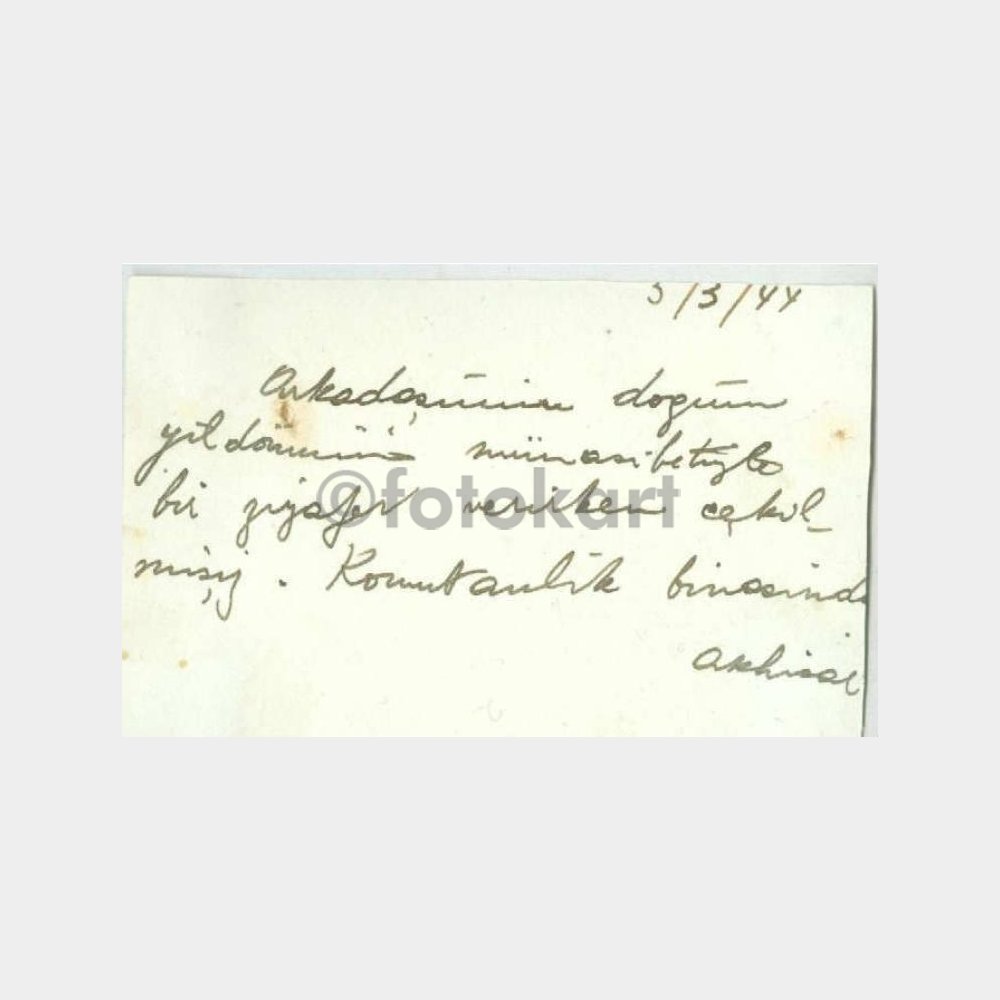 5/3/44
Arkadaşımın doğum
yıldönümü münasibetiyle
bir ziyafet verilken çekil-
mişij. Komutanlık binasında
Akhisar
©fotokart